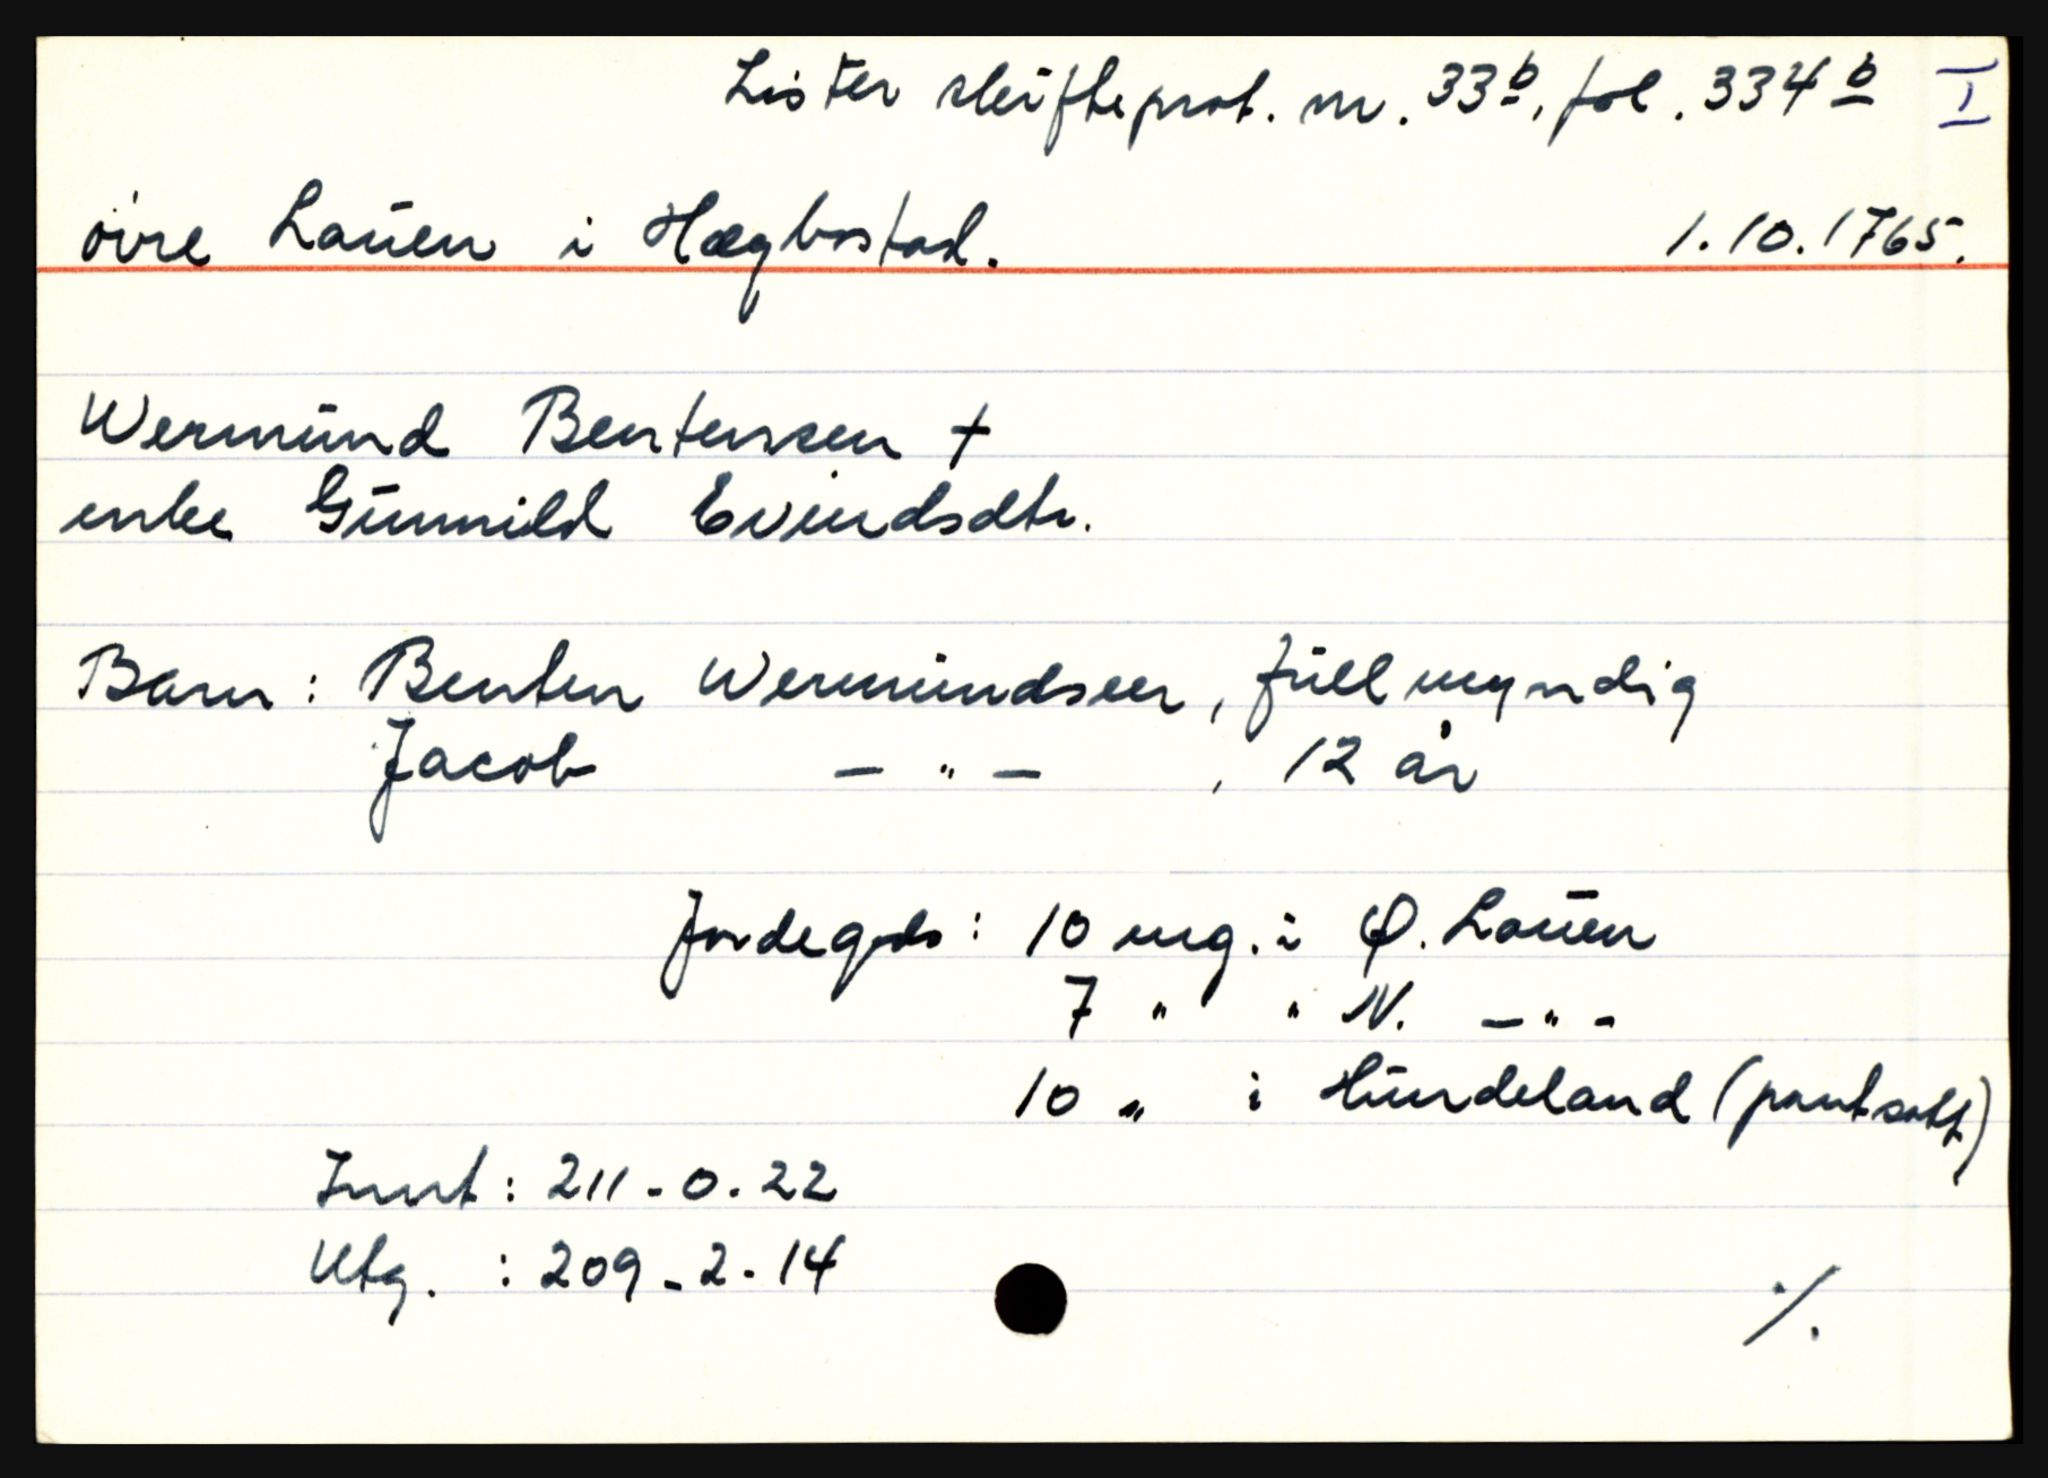 Lister skifteprot. nr. 33b, fol. 334b I
öire Lauen i Hægbostad. 1.10.1765.
Wermund Bentensen †
enke Gunnild Evindsdtr.
Barn: Benten Wermundsen, fullmyndig
Jacob — " — , 12 år
Jordegods: 10 mg. i Ø. Lauen
7 " " N. — " -
10 " i Hundeland (pantsatt)
Innt: 211-0-22
Utg. : 209-2-14
·/.